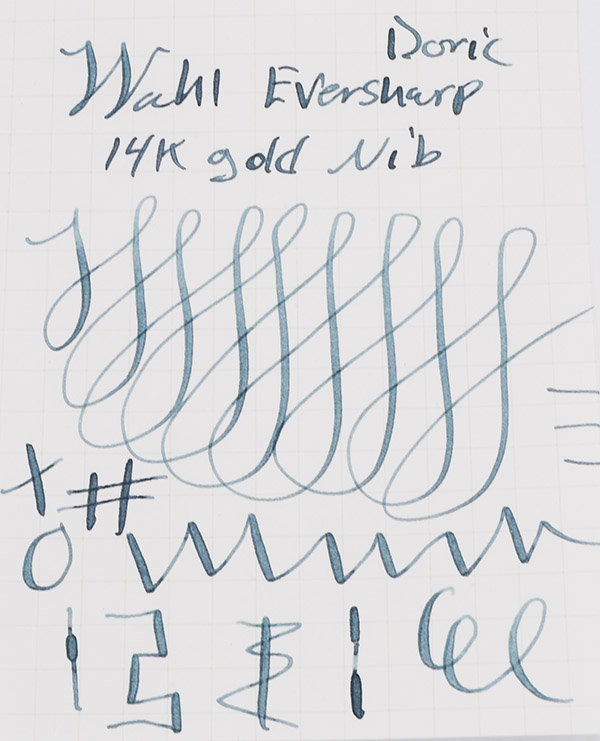 Doric
Wahl Eversharp
14K gold Nib